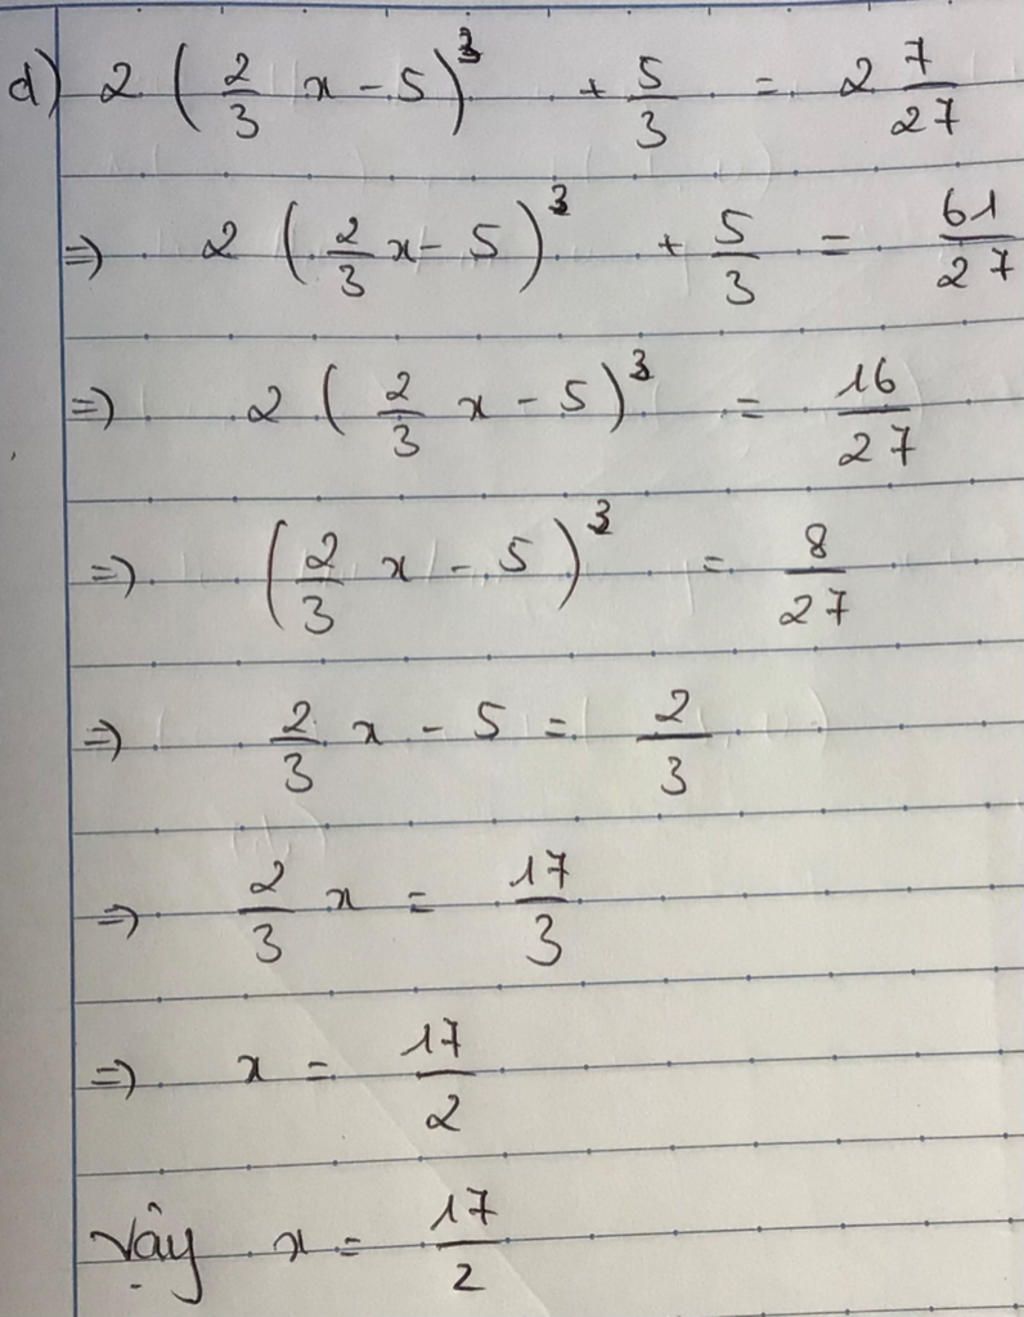 d) 2 ( 2/3 x - 5 )³ + 5/3 = 2 7/27
=> 2 ( 2/3 x - 5 )³ + 5/3 = 61/27
=> 2 ( 2/3 x - 5 )³ = 16/27
=> ( 2/3 x - 5 )³ = 8/27
=> 2/3 x - 5 = 2/3
=> 2/3 x = 17/3
=> x = 17/2
Vậy x = 17/2